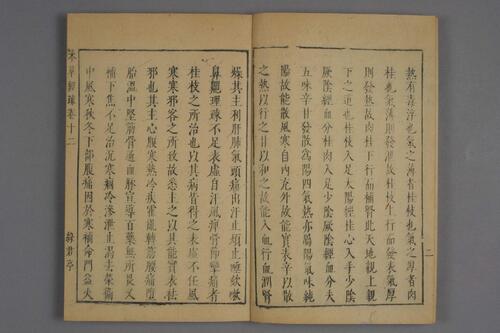 熱有毒浮也氣之薄者桂枝也氣之厚者肉
桂也氣薄則發泄故桂枝上行而發表氣厚
則發熱故肉桂下行而補腎此天地親上親
下之道也桂枝入足太陽經桂心入手少陰
厥陰經血分桂肉入足少陰厥陰經血分夫
五味辛甘發散為陽四氣熱亦屬陽氣味純
陽故能散風寒自內充外故能實表辛以散
之熱以行之甘以和之故能入血行血潤腎
燥其主利肝肺氣頭痛出汗止煩止唾欬嗽
鼻齆理疎不足表虛自汗風痺骨節攣痛者
桂枝之所治也以其病皆得之表虛不任風
寒寒邪客之所致故悉主之以其能實表祛
邪也其主心腹寒熱冷疾霍亂轉筋腰痛墮
胎溫中堅筋骨通血脈宣導百藥無所畏又
補下焦不足治沉寒痼冷滲泄止渴去榮衛
中風寒秋冬下部腹痛因於寒補命門益火
本草經疏卷十二
綠君亭
二